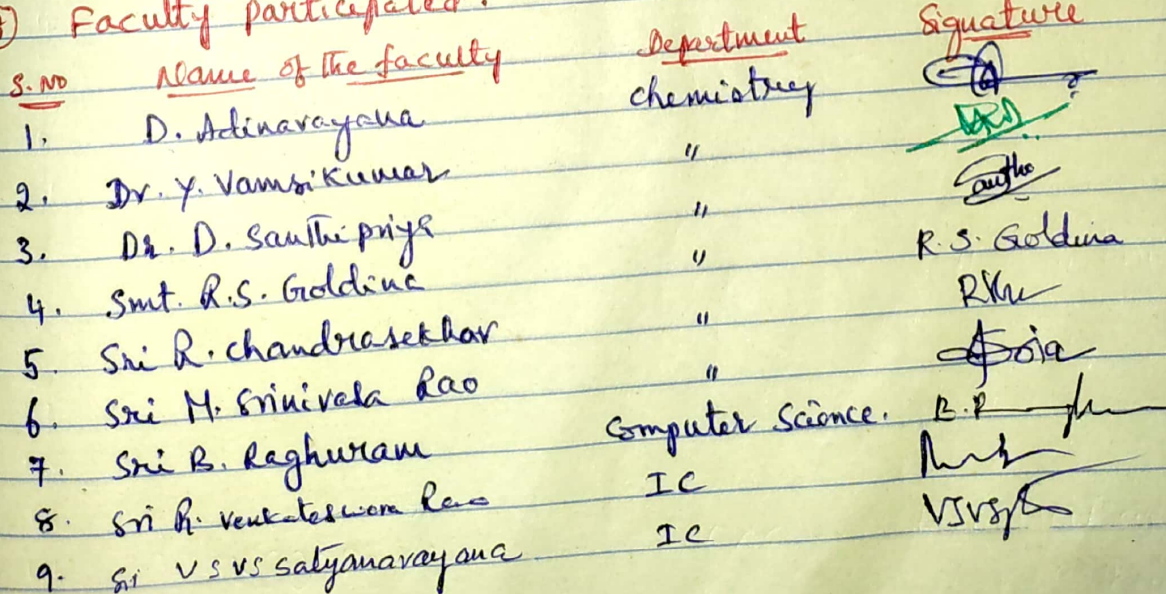 Faculty participated.
S.No Name of the faculty Department Signature
1. D. Adinarayana chemistry
2. Dr. Y. Vamsi Kumar "
3. Dr. D. Santhi priya "
4. Smt. R.S. Goldina " R. S. Goldina
5. Sri R. chandrasekhar "
6. Sri M. Srinivasa Rao "
7. Sri B. Raghuram Computer Science.
8. Sri R. Venkateswara Rao IC
9. Sri VSVS Satyanarayana IC